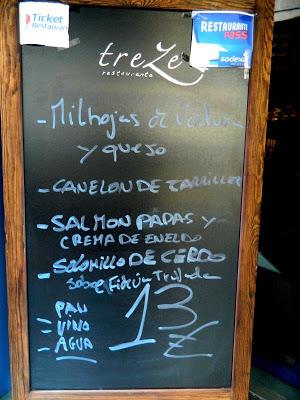 Ticket
Restaurant
RESTAURANTE
PASS
sodexo
treZe
restaurante
- Milhojas de Verdura
y queso
- CANELON DE CARRILLER
- SALMON PAPAS y
CREMA DE ENELDO
- SOLOMILLO DE CERDO
sobre Fideua Trufada
PAN
- VINO
- AGUA
13 €